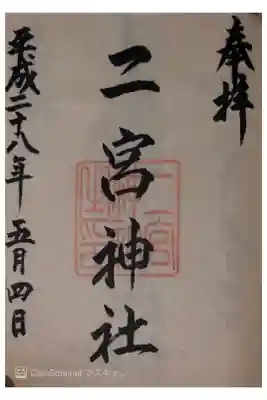 奉拝
二宮神社
平成二十八年 五月四日
CamScanner でスキャン